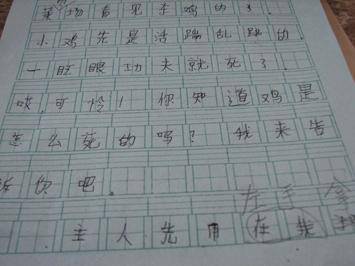 菜场看见杀鸡的了.
小鸡先是活蹦乱跳的.
一眨眼功夫就死了.
唉,可怜!你知道鸡是
怎么死的吗?我来告
诉你吧。
左手拿
主人先用在